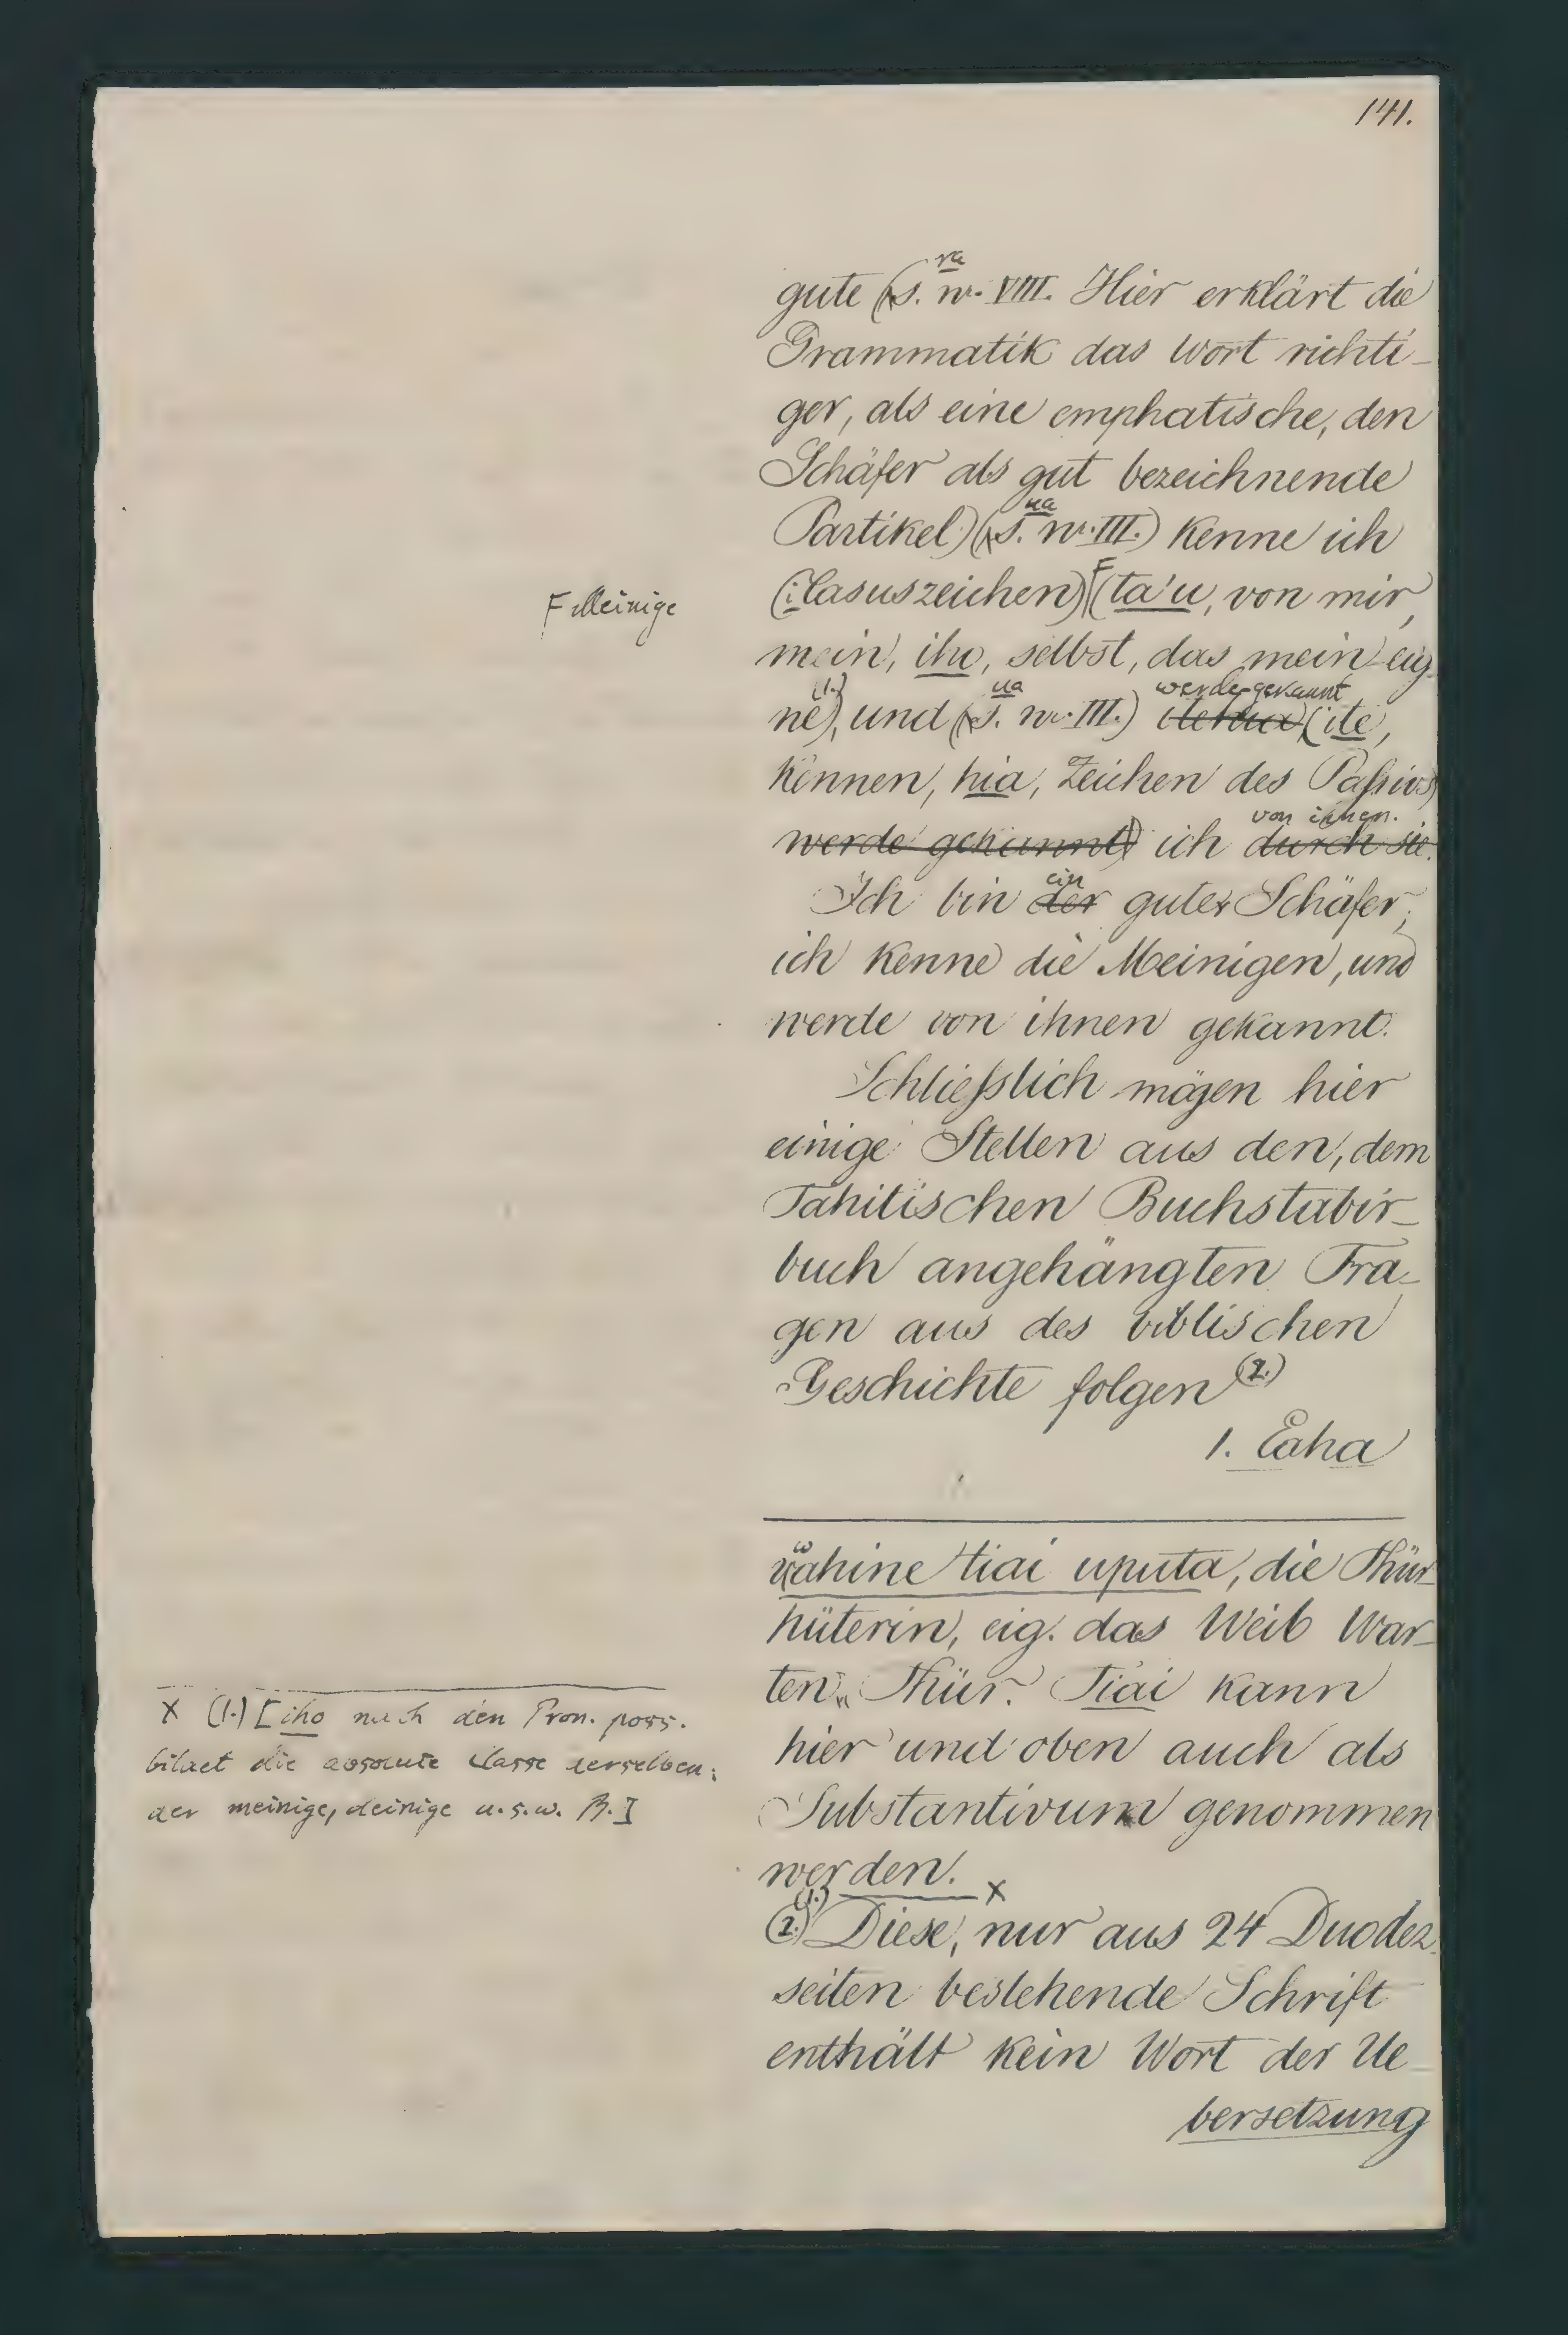 141.
ra
gute (s. nr. VIII. Hier erklärt die
Grammatik das Wort richti-
ger, als eine emphatische, den
Schäfer als gut bezeichnende
ua
Partikel) (s. nr. III.) kenne ich
(i Casuszeichen) F (ta'u, von mir,
F Meinige
mein, iho, selbst, das mein eig-
(1.) ua werde gekannt
ne), und (s. nr. III.) (ite,
kennen, hia, Zeichen des Passivs)
von ihnen.
werde gekannt) ich durch sie.
ein
Ich bin der guter Schäfer;
ich kenne die Meinigen, und
werde von ihnen gekannt.
Schliesslich mögen hier
einige Stellen aus den, dem
Tahitischen Buchstabir-
buch angehängten Fra-
gen aus des biblischen
Geschichte folgen (2.)
1. Eaha
w
vahine tiai uputa, die Thür-
hüterin, eig. das Weib War-
ten Thür. Tiai kann
hier und oben auch als
Substantivum genommen
werden.
X (1.) [iho nach den Pron. poss.
bildet die absolute Classe derselben:
der meinige, deinige u.s.w. B.]
(1.) X
(2.) Diese, nur aus 24 Duodez-
seiten bestehende Schrift
enthält kein Wort der Ue-
bersetzung